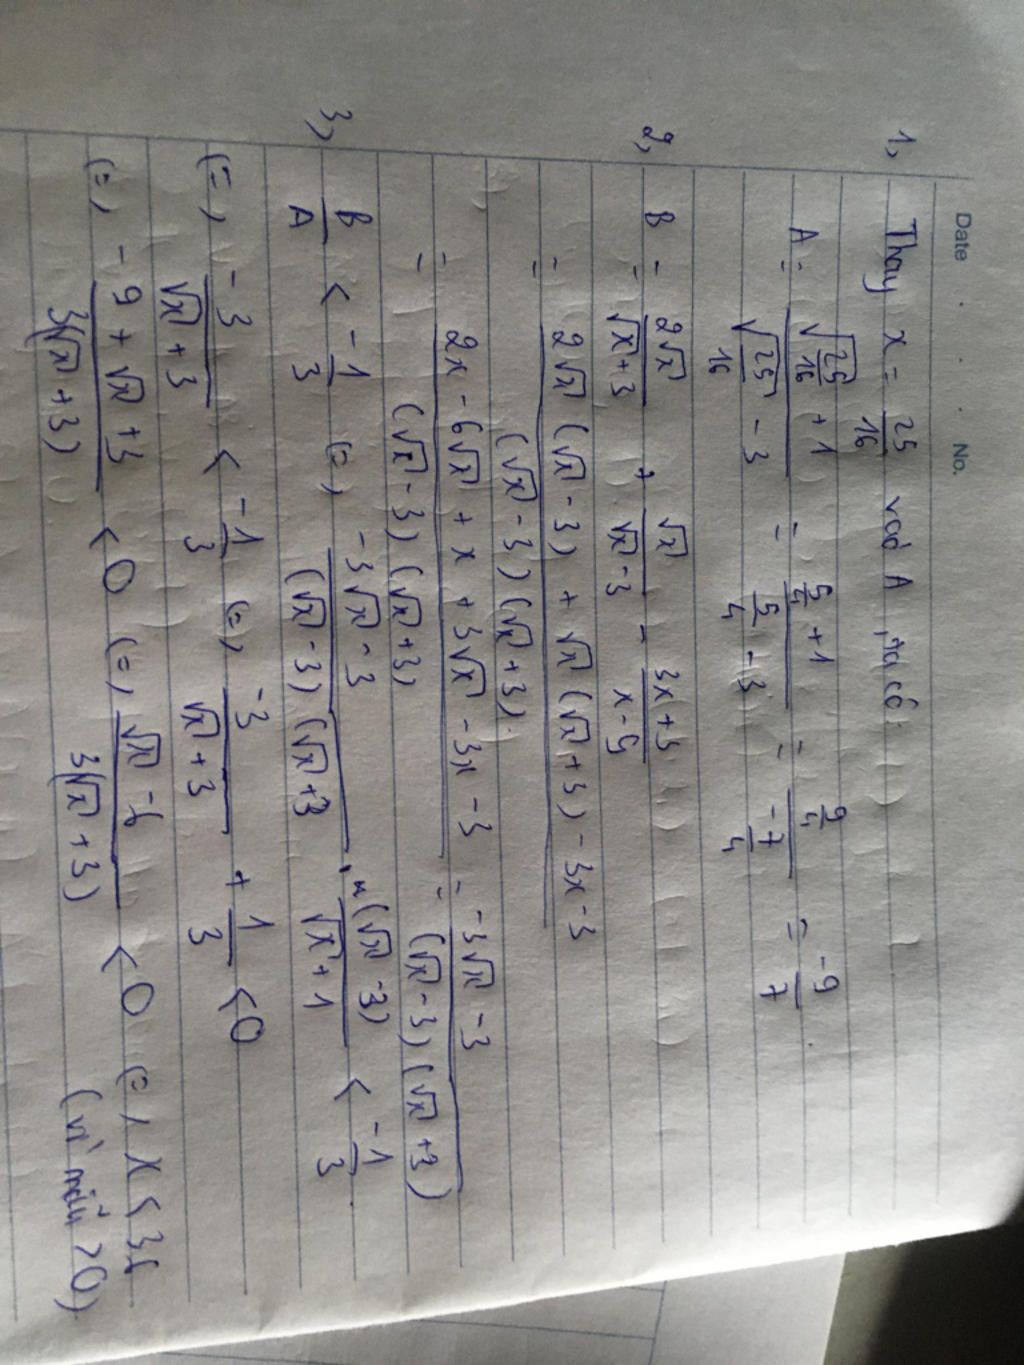 Date No.
1, Thay x = 25/16 vào A, ta có
A = (√(25/16) + 1)/(√(25/16) - 3) = (5/4 + 1)/(5/4 - 3) = (9/4)/(-7/4) = -9/7
2, B = 2√x/(√x + 3) + √x/(√x - 3) - (3x + 3)/(x - 9)
= (2√x (√x - 3) + √x (√x + 3) - 3x - 3)/((√x - 3)(√x + 3))
= (2x - 6√x + x + 3√x - 3x - 3)/((√x - 3)(√x + 3)) = (-3√x - 3)/((√x - 3)(√x + 3))
3, B/A < -1/3 (=) (-3√x - 3)/((√x - 3)(√x + 3) . (√x - 3)/(√x + 1) < -1/3
(=) -3/(√x + 3) < -1/3 (=) -3/(√x + 3) + 1/3 < 0
(=) (-9 + √x + 3)/(3(√x + 3)) < 0 (=) (√x - 6)/(3(√x + 3)) < 0 (=) x < 36
(vì mẫu > 0)